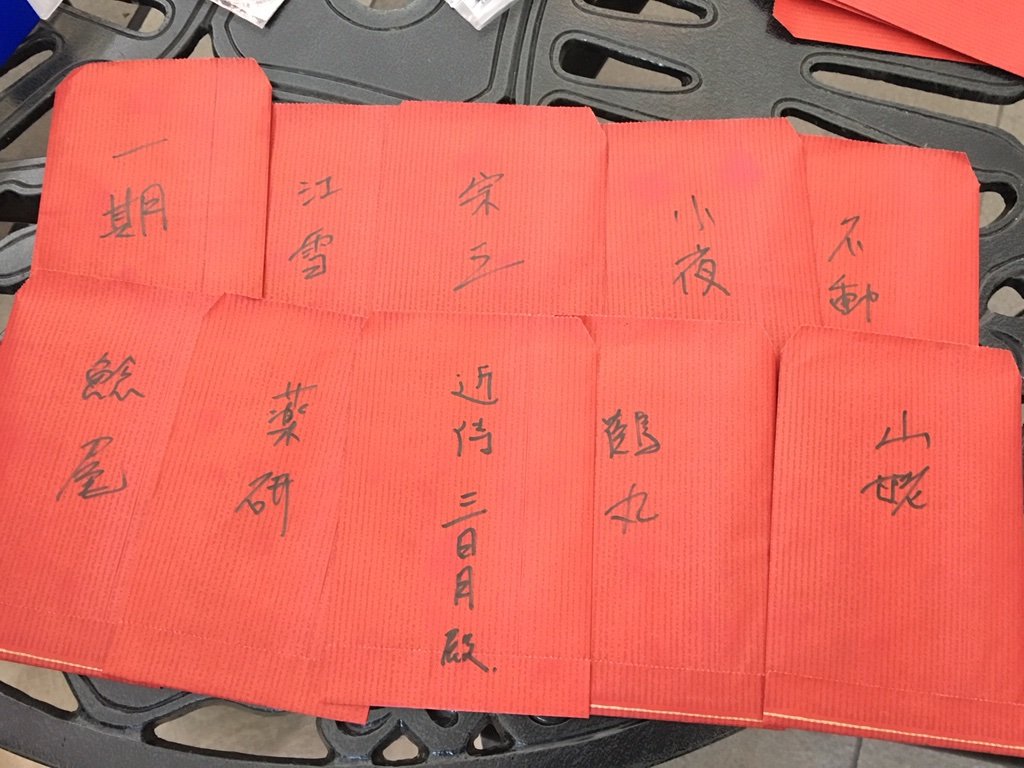 一期
江雪
宗三
小夜
不動
鯰尾
薬研
近侍 三日月殿
鶴丸
山姥